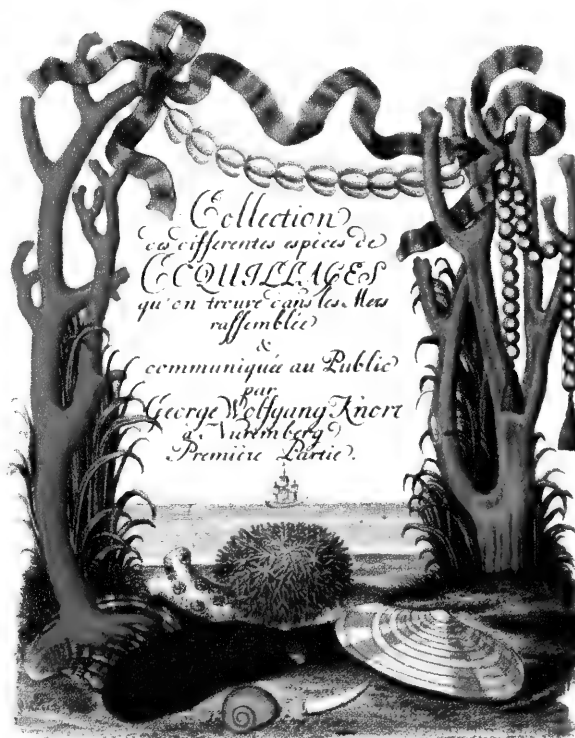 Collection
des differentes espèces de
COQUILLAGES
qu'on trouve dans les Mers
rassemblée
&
communiquée au Public
par
George Wolfgang Knorr
à Nuremberg
Première Partie.